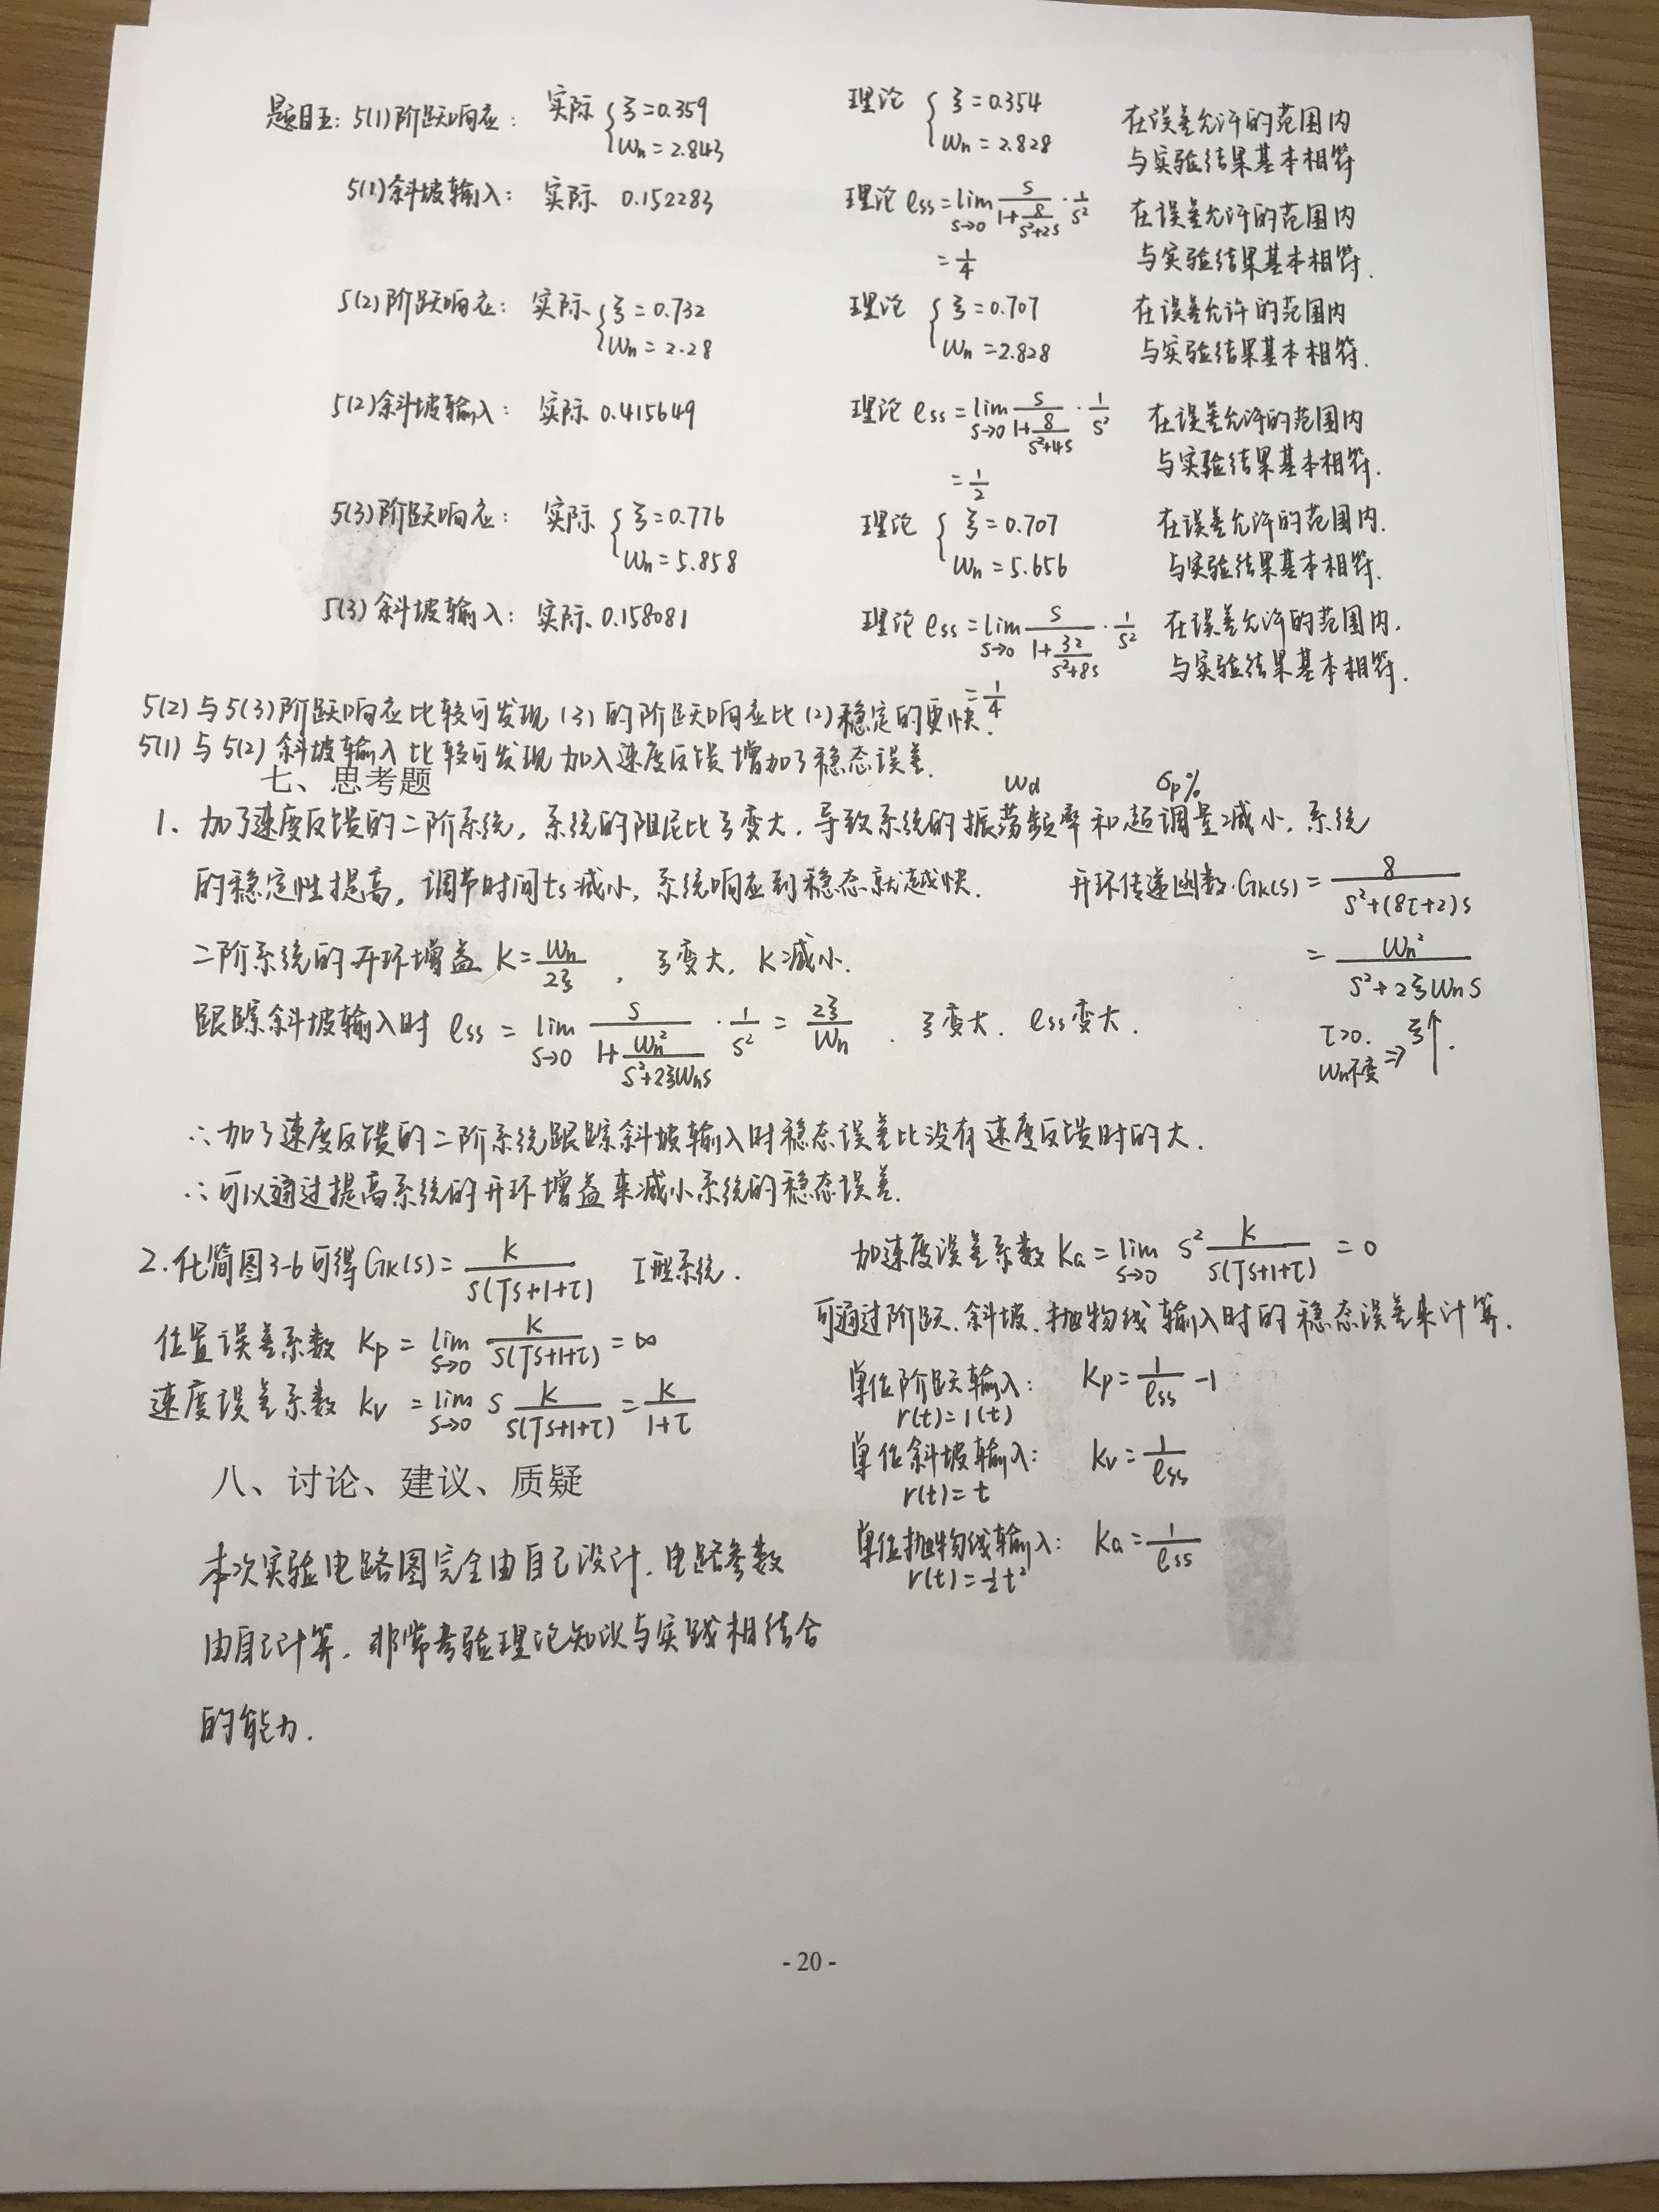 题目五: 5(1)阶跃响应: 实际 { ξ=0.359 ωn=2.843 理论 { ξ=0.354 ωn=2.828 在误差允许的范围内
与实验结果基本相符
5(1)斜坡输入: 实际 0.152283 理论 ess=lim s→0 s/(1+8/(s²+2s))·1/s² 在误差允许的范围内
=1/4 与实验结果基本相符.
5(2)阶跃响应: 实际 { ξ=0.732 ωn=2.28 理论 { ξ=0.707 ωn=2.828 在误差允许的范围内
与实验结果基本相符.
5(2)斜坡输入: 实际 0.415649 理论 ess=lim s→0 s/(1+8/(s²+4s))·1/s² 在误差允许的范围内
=1/2 与实验结果基本相符.
5(3)阶跃响应: 实际 { ξ=0.776 ωn=5.858 理论 { ξ=0.707 ωn=5.656 在误差允许的范围内.
与实验结果基本相符.
5(3)斜坡输入: 实际 0.158081 理论 ess=lim s→0 s/(1+32/(s²+8s))·1/s² 在误差允许的范围内.
=1/4 与实验结果基本相符.
5(2)与5(3)阶跃响应比较可发现(3)的阶跃响应比(2)稳定的更快.
5(1)与5(2)斜坡输入比较可发现加入速度反馈增加了稳态误差.
七、思考题
ωd σp%
1、加了速度反馈的二阶系统,系统的阻尼比ξ变大,导致系统的振荡频率和超调量减小,系统
的稳定性提高,调节时间ts减小,系统响应到稳态就越快. 开环传递函数.GK(s)=8/(s²+(8τ+2)s)
二阶系统的开环增益 K=ωn/2ξ , ξ变大, K减小. =ωn²/(s²+2ξωns)
跟踪斜坡输入时 ess=lim s→0 s/(1+ωn²/(s²+2ξωns))·1/s²=2ξ/ωn . ξ变大. ess变大.
τ>0. ωn不变 ⇒ ξ↑.
∴加了速度反馈的二阶系统跟踪斜坡输入时稳态误差比没有速度反馈时的大.
∴可以通过提高系统的开环增益来减小系统的稳态误差.
2.化简图3-6可得GK(s)=K/(s(Ts+1+τ)) I型系统.
位置误差系数 Kp=lim s→0 K/(s(Ts+1+τ))=∞
速度误差系数 Kv=lim s→0 s K/(s(Ts+1+τ))=K/(1+τ)
加速度误差系数 Ka=lim s→0 s² K/(s(Ts+1+τ))=0
可通过阶跃.斜坡.抛物线输入时的稳态误差来计算.
单位阶跃输入: Kp=1/ess -1
r(t)=1(t)
单位斜坡输入: Kv=1/ess
r(t)=t
单位抛物线输入: Ka=1/ess
r(t)=½t²
八、讨论、建议、质疑
本次实验电路图完全由自己设计.电路参数
由自己计算.非常考验理论知识与实践相结合
的能力.
- 20 -